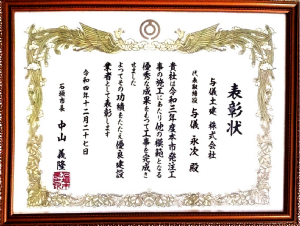 表彰状
与儀土建 株式会社
代表取締役 与儀 永次 殿
貴社は令和三年度本市発注工
事の施工にあたり他の模範となる
優秀な成果をもって工事を完成さ
せました
よってその功績をたたえ優良建設
業者として表彰します
令和四年十二月二十七日
石垣市長 中山 義隆